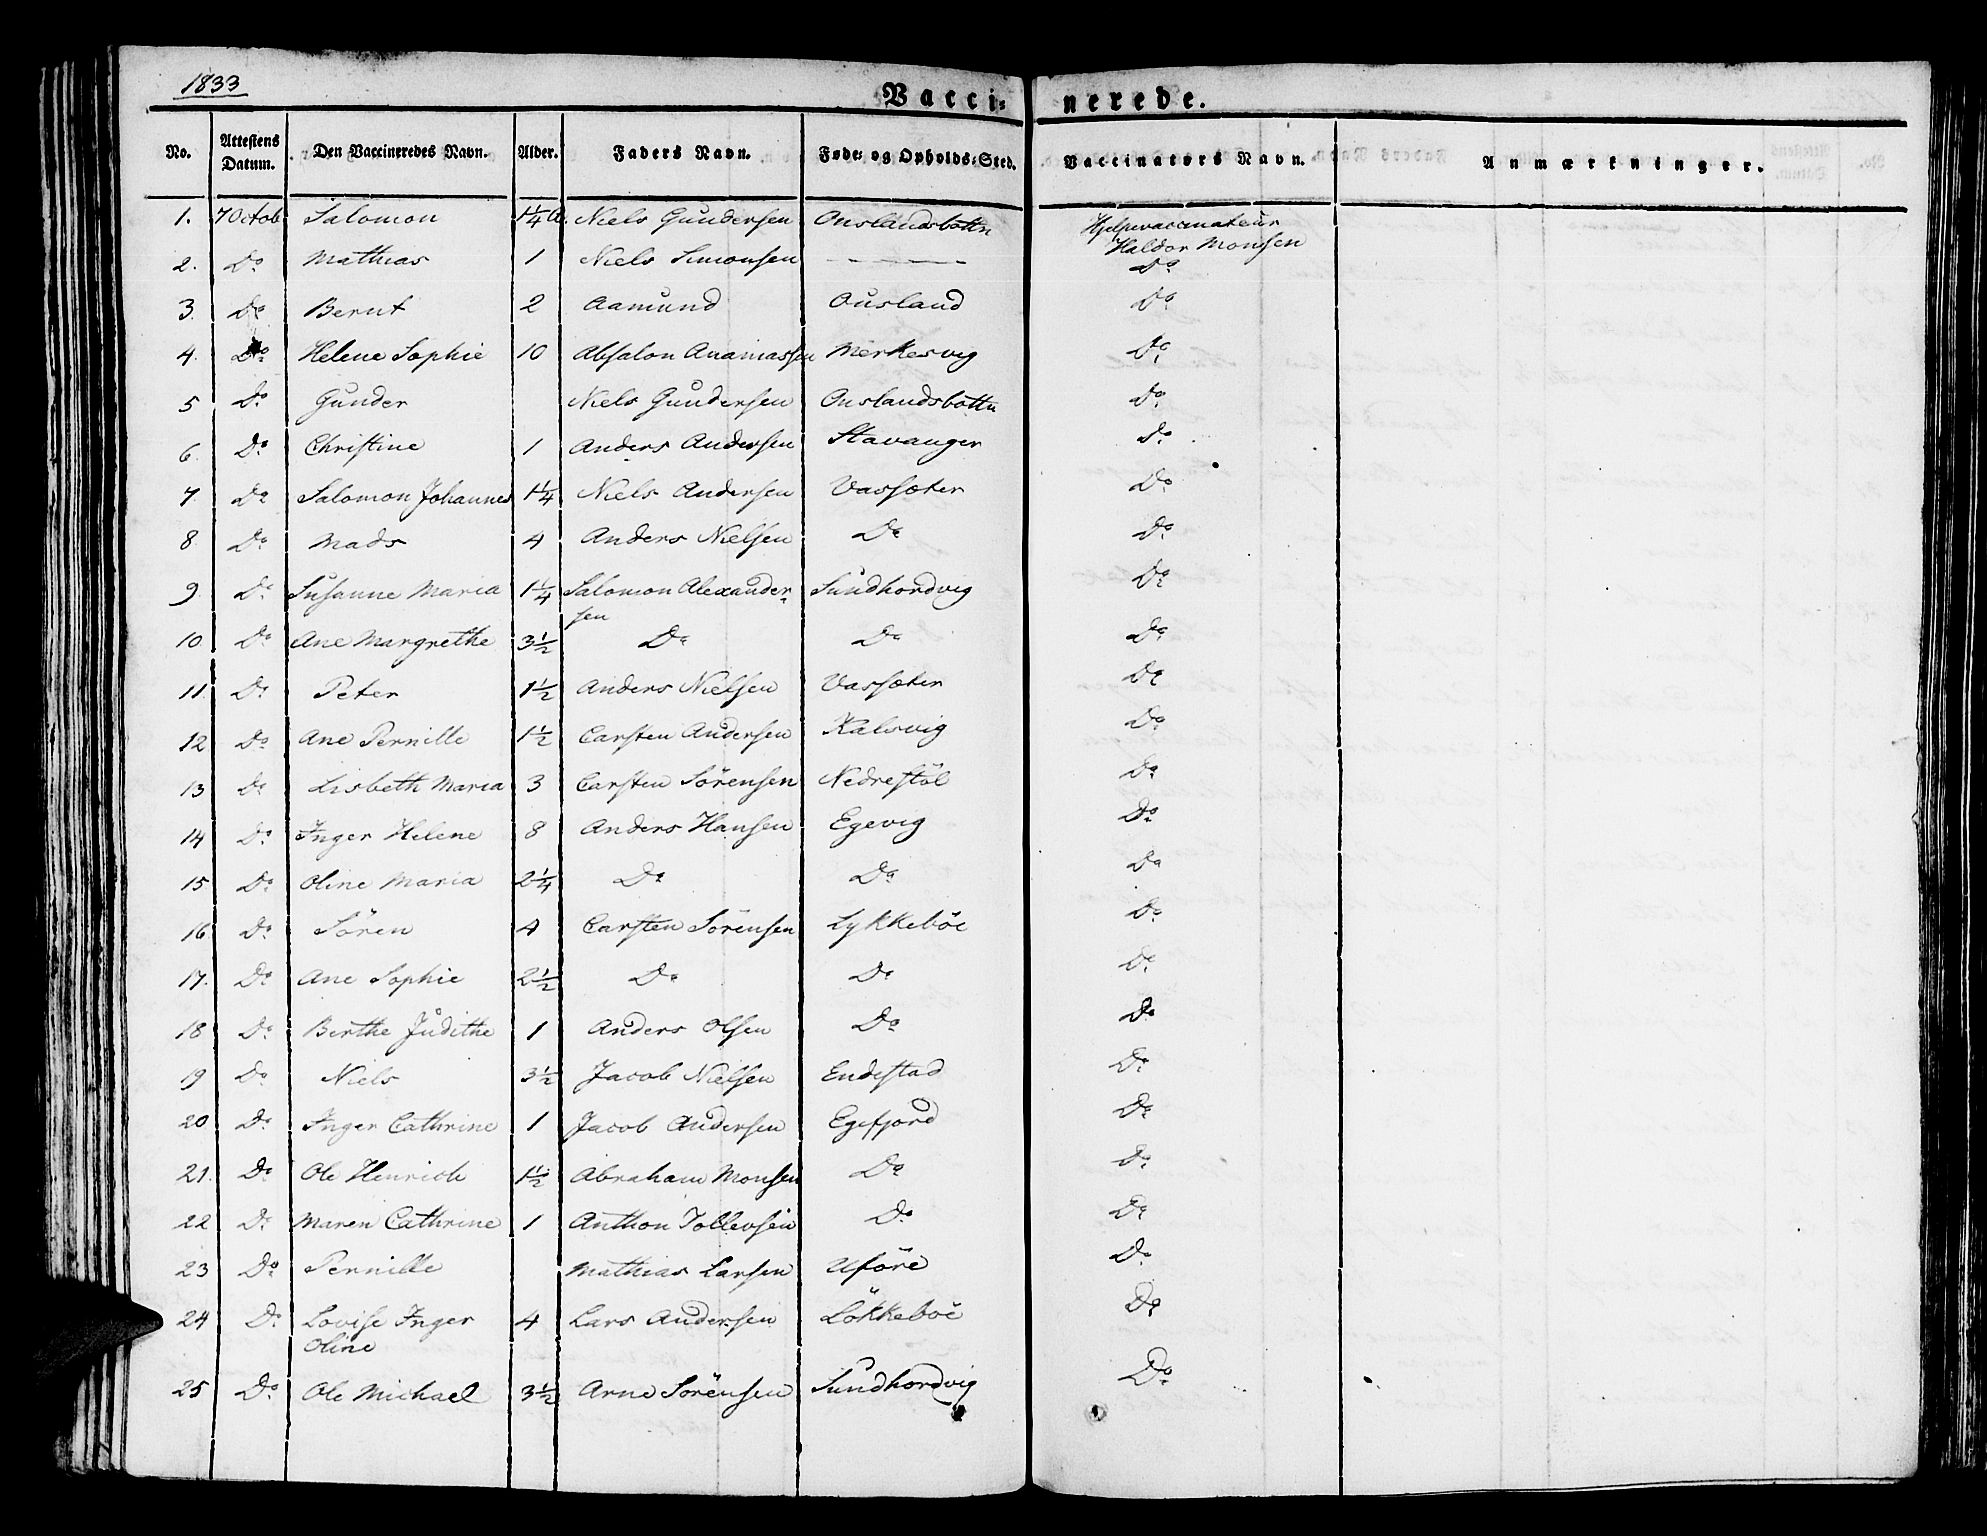 1833
Vacci- nerede.
No. Attestens Datum. Den Vaccineredes Navn. Alder. Faders Navn. Føde- og Opholds-Sted. Vaccinators Navn. Anmærkninger.
1. 7 Octob Salomon 1 1/4 A Niels Gundersen Ouslandsbottn Hjelpevaccinateur Haldor Monsen
2. Do Mathias 1 Niels Simonsen — — — Do
3. Do Bernt 2 Aamund Ousland Do
4. Do Helene Sophie 10 Absalon Ananiassen Merkesvig Do
5 Do Gunder Niels Gundersen Ouslandsbottn Do
6. Do Christine 1 Anders Andersen Stavanger Do
7. Do Salomon Johannes 1 1/4 Niels Andersen Vassæter Do
8. Do Mads 4 Anders Nielsen Do Do
9. Do Susanne Maria 1 1/4 Salomon Alexander-sen Sundhordvig Do
10. Do Ane Margrethe 3 1/2 Do Do Do
11. Do Peter 1 1/2 Anders Nielsen Vassæter Do
12 Do Ane Pernille 1 1/2 Carsten Andersen Kalsvig Do
13 Do Lisbeth Maria 3 Carsten Sörensen Nedrestöl Do
14 Do Inger Helene 8 Anders Hansen Egevig Do
15 Do Oline Maria 2 1/4 Do Do Do
16 Do Sören 4 Carsten Sörensen Lykkeböe Do
17. Do Ane Sophie 2 1/2 Do Do Do
18 Do Berthe Judithe 1 Anders Olsen Do Do
19 Do Niels 3 1/2 Jacob Nielsen Endestad Do
20 Do Inger Cathrine 1 Jacob Andersen Egefjord Do
21. Do Ole Henrich 1 1/2 Abraham Monsen Do Do
22 Do Maren Cathrine 1 Anthon Tollevsen Do Do
23 Do Pernille Mathias Larsen Uföre Do
24 Do Lovise Inger Oline 4 Lars Andersen Lökkeböe Do
25 Do Ole Michael 3 1/2 Arne Sörensen Sundhordvig Do